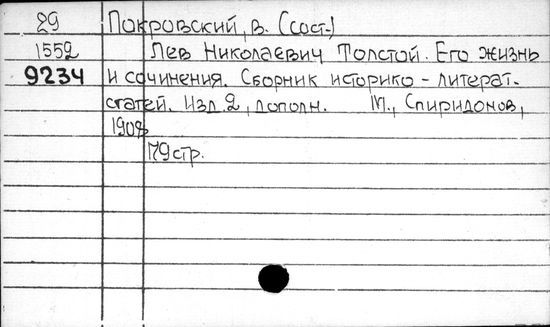 29 Покровский, В. (сост.)
1552 Лев Николаевич Толстой. Его жизнь
9234 и сочинения. Сборник историко-литерат.
статей. Изд. 2, дополн. М., Спиридонов,
1908
179 стр.